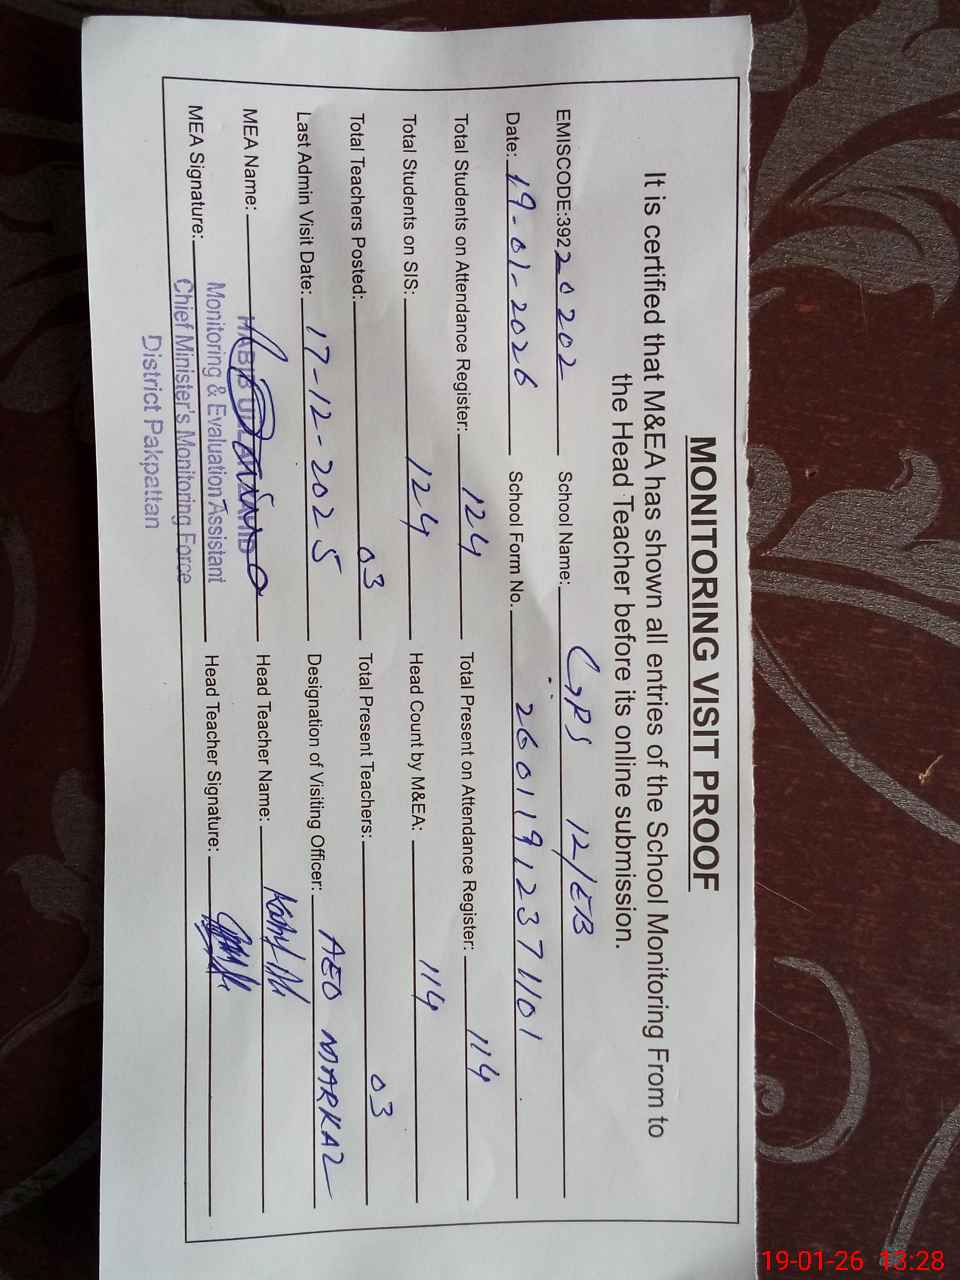 MONITORING VISIT PROOF
It is certified that M&EA has shown all entries of the School Monitoring From to
the Head Teacher before its online submission.
EMISCODE:39220202 School Name: GPS 12/EB
Date: 19-01-2026 School Form No. 26011912371101
Total Students on Attendance Register: 124 Total Present on Attendance Register: 114
Total Students on SIS: 124 Head Count by M&EA: 114
Total Teachers Posted: 03 Total Present Teachers: 03
Last Admin Visit Date: 17-12-2025 Designation of Visiting Officer: AEO MARKAZ
MEA Name: HABIB Head Teacher Name:
MEA Signature: Head Teacher Signature:
Monitoring & Evaluation Assistant
Chief Minister's Monitoring Force
District Pakpattan
19-01-26 13:28